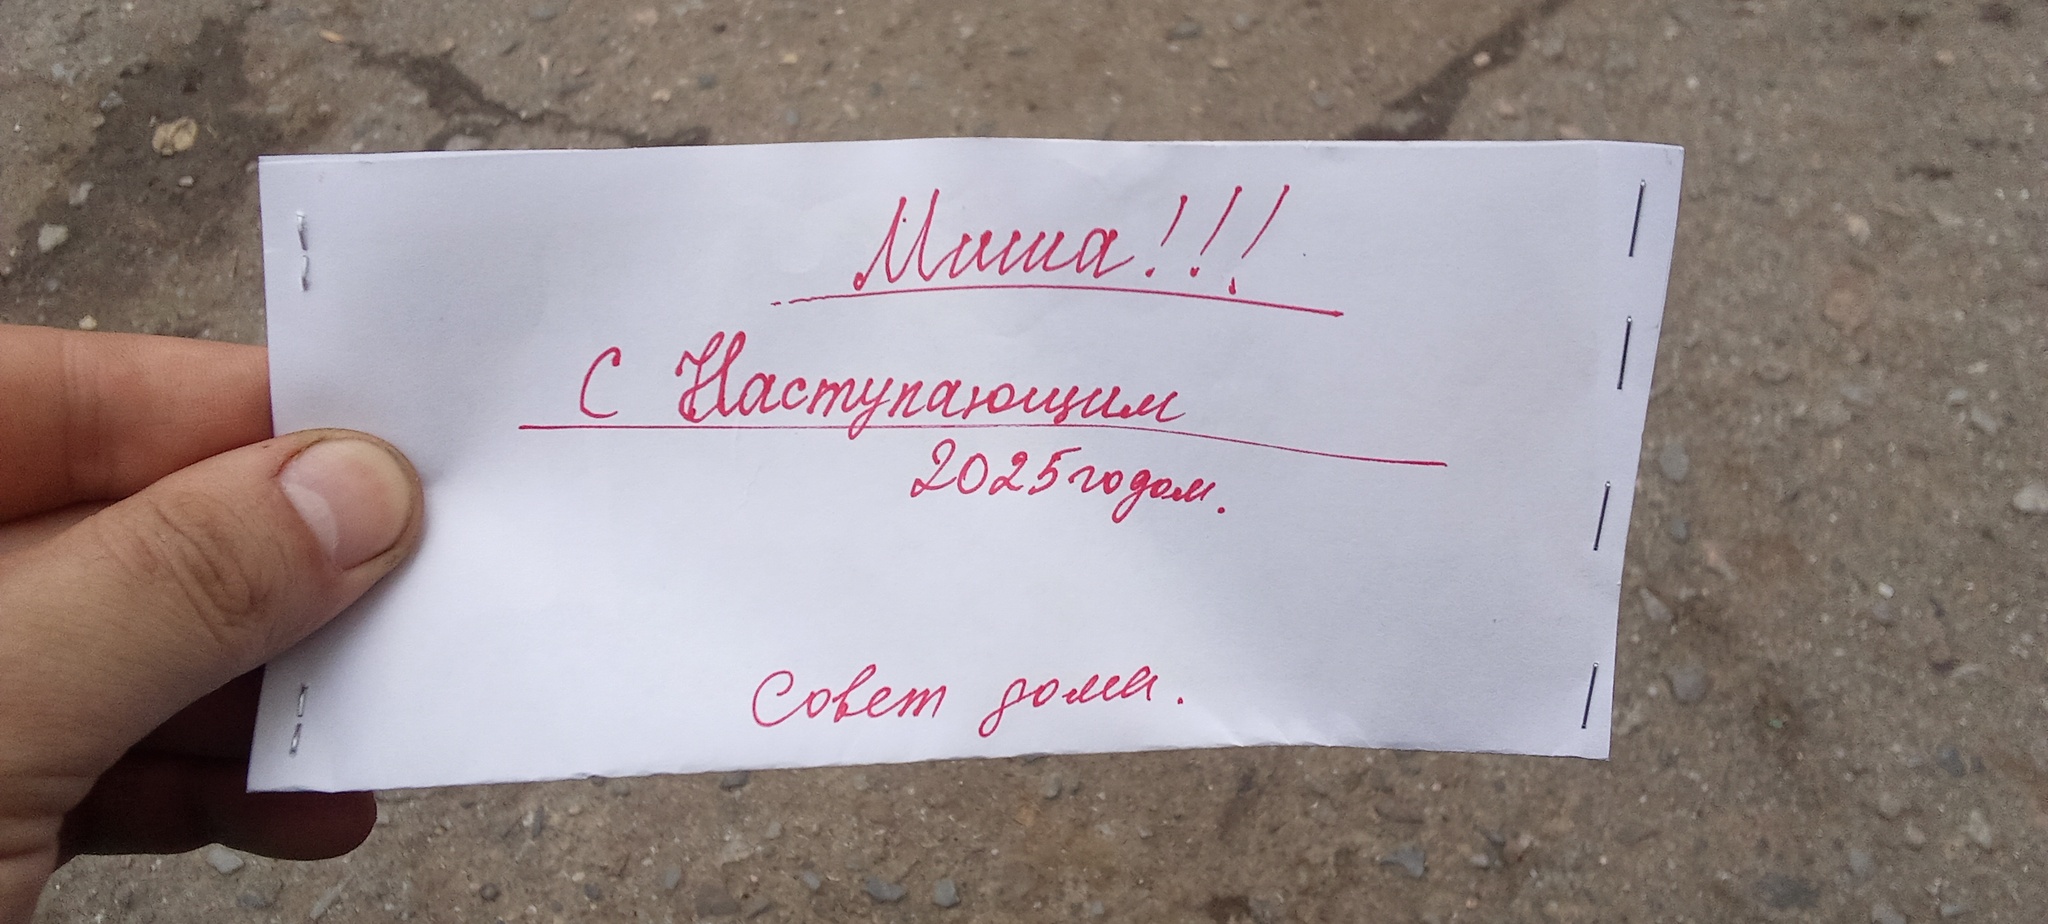 Миша!!!
С Наступающим
2025 годом.
Совет дома.